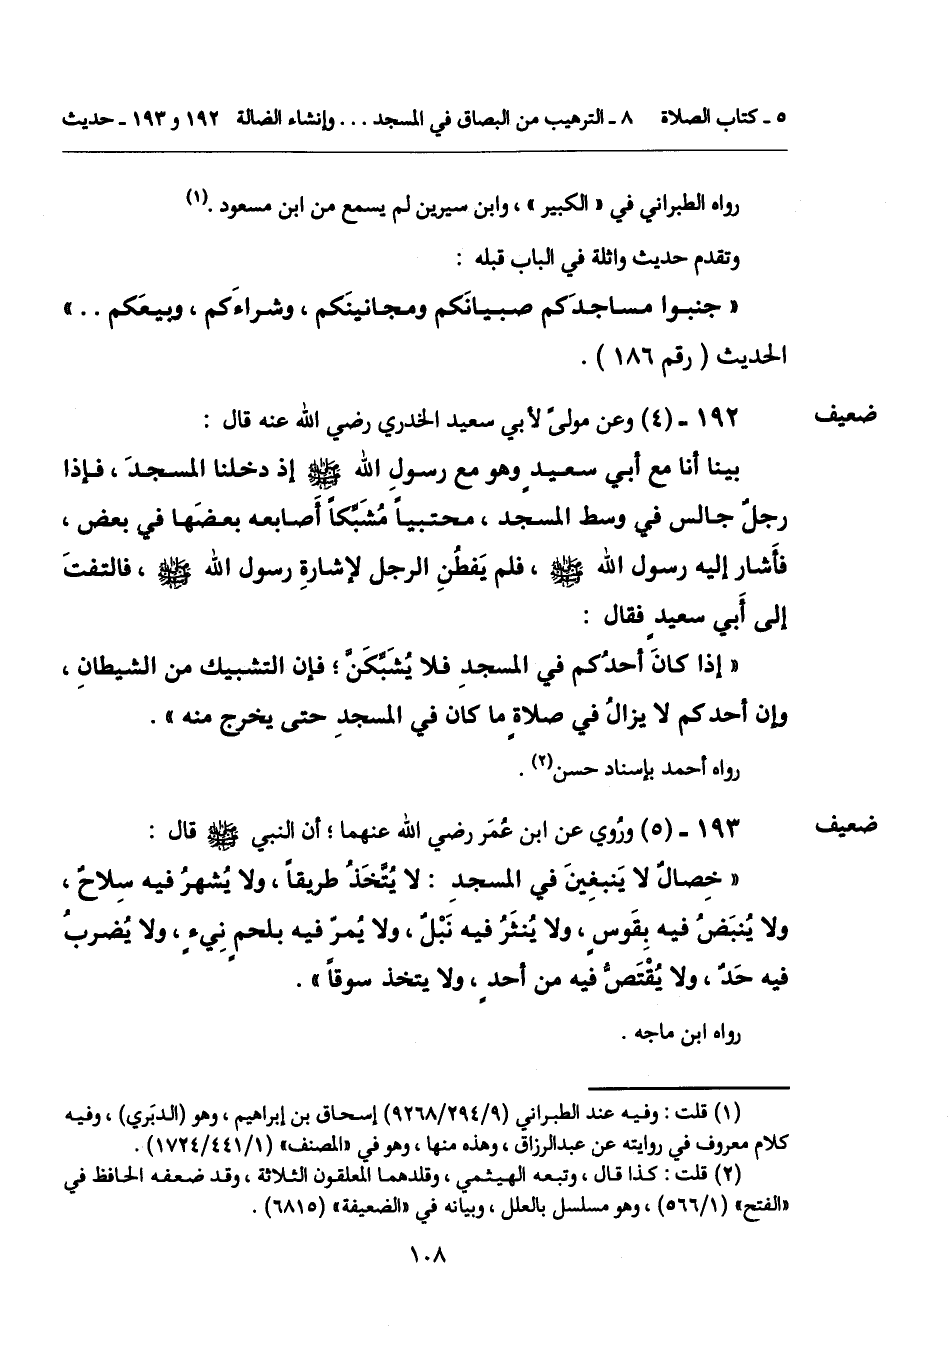 ٥ ـ كتاب الصلاة ٨ ـ الترهيب من البصاق في المسجد ... وإنشاء الضالة ١٩٢ و ١٩٣ ـ حديث
رواه الطبراني في « الكبير » ، وابن سيرين لم يسمع من ابن مسعود .(١)
وتقدم حديث واثلة في الباب قبله :
« جنبوا مساجدَكم صبيانَكم ومجانينَكم ، وشراءَكم ، وبيعَكم .. »
الحديث ( رقم ١٨٦ ) .
ضعيف ١٩٢ ـ (٤) وعن مولىً لأبي سعيد الخدري رضي الله عنه قال :
بينا أنا مع أبي سعيدٍ وهو مع رسولِ الله ﷺ إذ دخلنا المسجدَ ، فإذا
رجلٌ جالس في وسط المسجد ، محتبياً مُشَبِّكاً أَصابعه بعضَها في بعض ،
فأَشار إليه رسول الله ﷺ ، فلم يَفطُنِ الرجل لإشارةِ رسول الله ﷺ ، فالتفتَ
إلى أَبي سعيدٍ فقال :
« إذا كانَ أحدُكم في المسجدِ فلا يُشَبِّكَنَّ ؛ فإن التشبيك من الشيطانِ ،
وإن أحدكم لا يزالُ في صلاةٍ ما كان في المسجدِ حتى يخرج منه » .
رواه أحمد بإسناد حسن(٢) .
ضعيف ١٩٣ ـ (٥) ورُوي عن ابن عُمَر رضي الله عنهما ؛ أن النبي ﷺ قال :
« خِصالٌ لا يَنبغِينَ في المسجدِ : لا يُتَّخَذُ طريقاً ، ولا يُشهرُ فيه سِلاحٌ ،
ولا يُنبَضُ فيه بِقَوسٍ ، ولا يُنثَرُ فيه نَبْلٌ ، ولا يُمرّ فيه بلحمٍ نِيءٍ ، ولا يُضربُ
فيه حَدٌ ، ولا يُقْتَصُّ فيه من أحدٍ ، ولا يتخذ سوقاً » .
رواه ابن ماجه .
(١) قلت : وفيه عند الطبراني (٩/٢٩٤/٩٢٦٨) إسحاق بن إبراهيم ، وهو (الدبَري) ، وفيه
كلام معروف في روايته عن عبدالرزاق ، وهذه منها ، وهو في «المصنف» (١/٤٤١/١٧٢٤) .
(٢) قلت : كذا قال ، وتبعه الهيثمي ، وقلدهما المعلقون الثلاثة ، وقد ضعفه الحافظ في
«الفتح» (١/٥٦٦) ، وهو مسلسل بالعلل ، وبيانه في «الضعيفة» (٦٨١٥) .
١٠٨